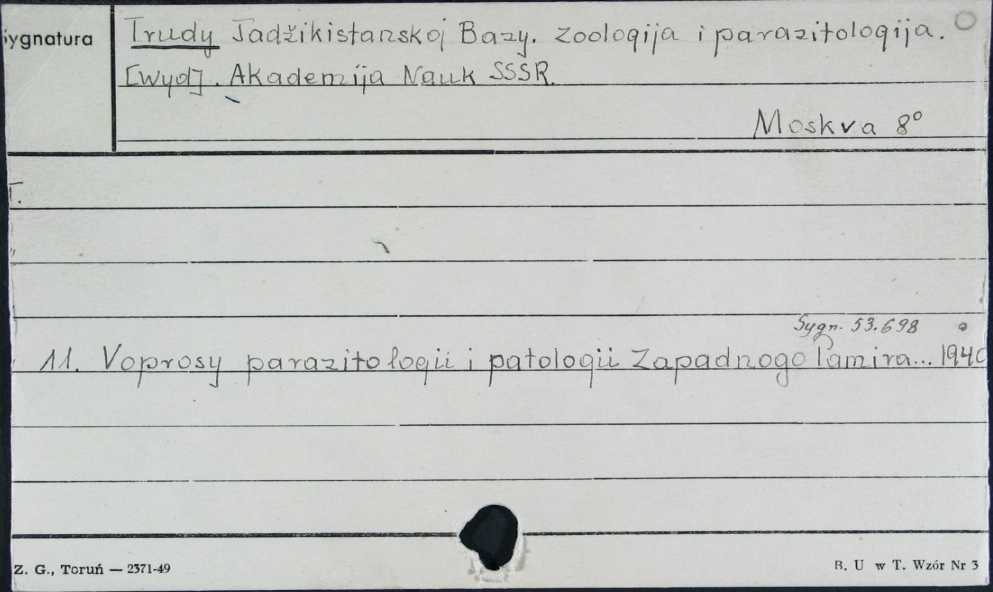 Sygnatura
Trudy Tadžikistanskoj Bazy. Zoologija i parazitologija.
[Wyd]. Akademija Nauk SSSR.
Moskva 8°
T.
Sygn. 53.698
11. Voprosy parazitologii i patologii Zapadnogo Pamira... 1940
Z. G., Toruń — 2371-49
B. U w T. Wzór Nr 3